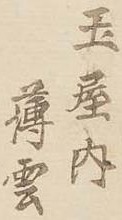 玉屋内
薄雲